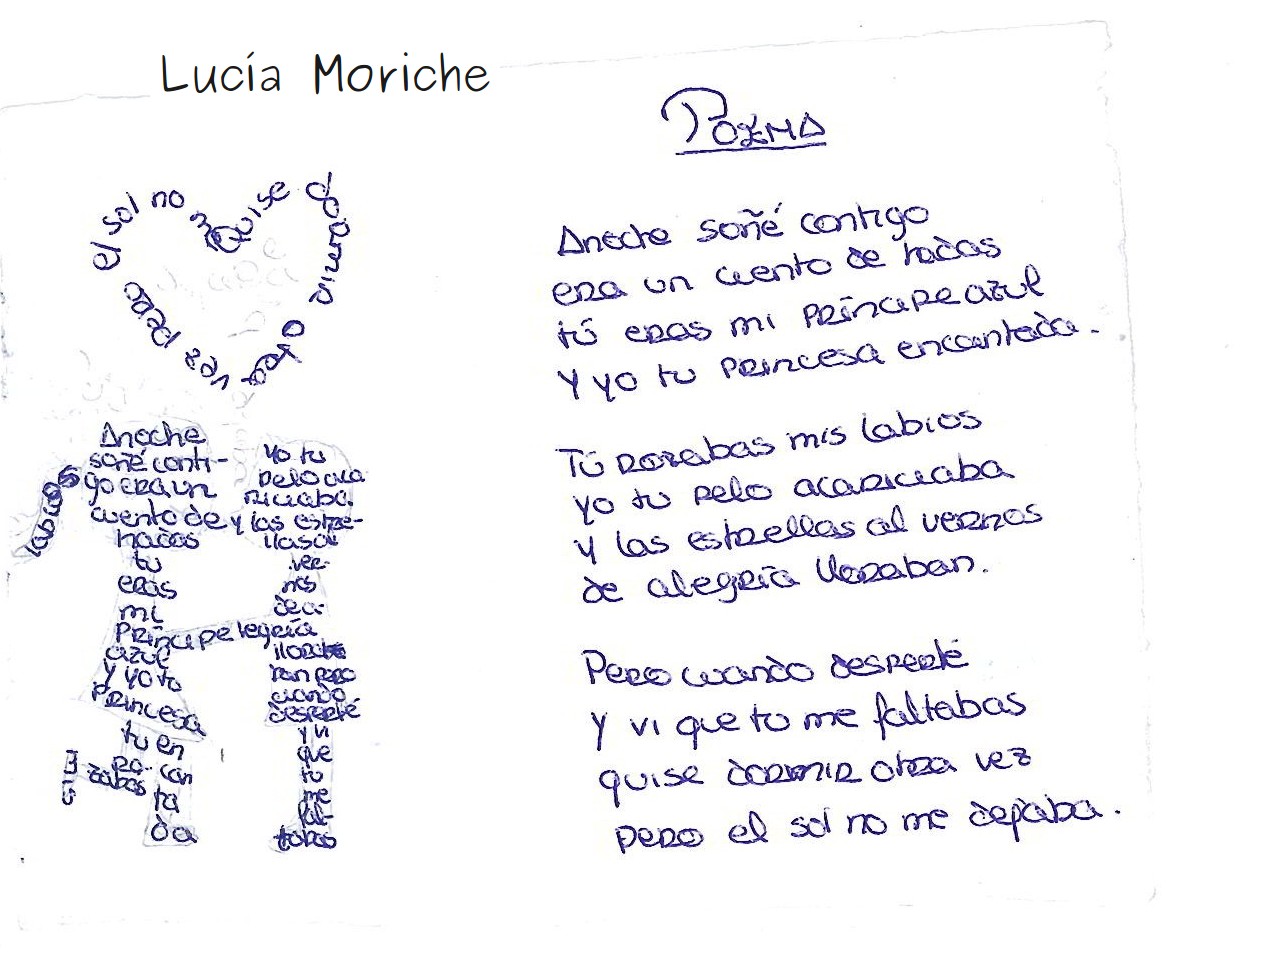 Lucía Moriche
Poema
Anoche soñé contigo
era un cuento de hadas
tú eras mi príncipe azul
y yo tu princesa encantada.
Tú rozabas mis labios
yo tu pelo acariciaba
y las estrellas al vernos
de alegría lloraban.
Pero cuando desperté
y vi que tu me faltabas
quise dormir otra vez
pero el sol no me dejaba.
el sol no m
quise dormir
otra
vez pero
Anoche
soñé conti-
go era un
cuento de
hadas
tu
eras
mi
príncipe
azul
y yo tu
princesa
tu en
can
ta
da
ro-
zabas
mis
labios
Yo tu
pelo aca
riciaba
y las estre-
llas al
ver-
nos
de a-
legría
llora
ban pero
cuando
desperté
y vi
que
tu
me
fal-
tabas